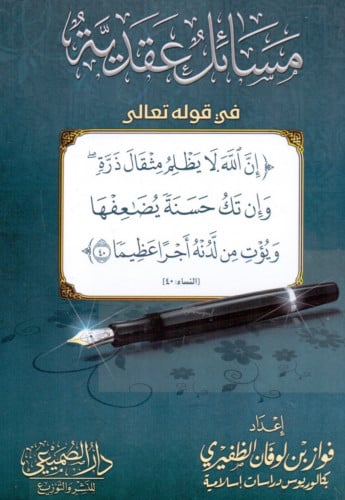 مسائل عقدية
في قوله تعالى
﴿ إِنَّ ٱللَّهَ لَا يَظْلِمُ مِثْقَالَ ذَرَّةٍۖ
وَإِن تَكُ حَسَنَةً يُضَٰعِفْهَا
وَيُؤْتِ مِن لَّدُنْهُ أَجْرًا عَظِيمًا ﴿٤٠﴾
[النساء: ٤٠]
إعداد
فواز بن لوفان الظفيري
بكالوريوس دراسات إسلامية
دار الصميعي
للنشر والتوزيع